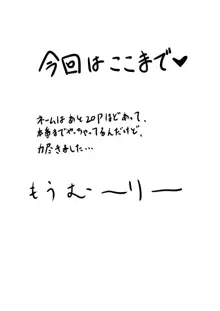 今回はここまで♥
ネームはあと20Pほどあって、
本番までやっちゃってるんだけど、
力尽きました…
もうむーりー